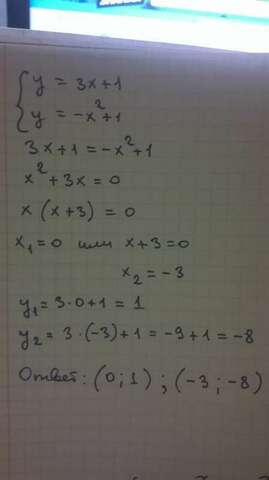 { y = 3x+1
y = -x²+1
3x+1 = -x²+1
x² + 3x = 0
x (x+3) = 0
x₁=0 или x+3=0
x₂ = -3
y₁= 3·0+1 = 1
y₂= 3·(-3)+1 = -9+1 = -8
Ответ: (0;1) ; (-3;-8)